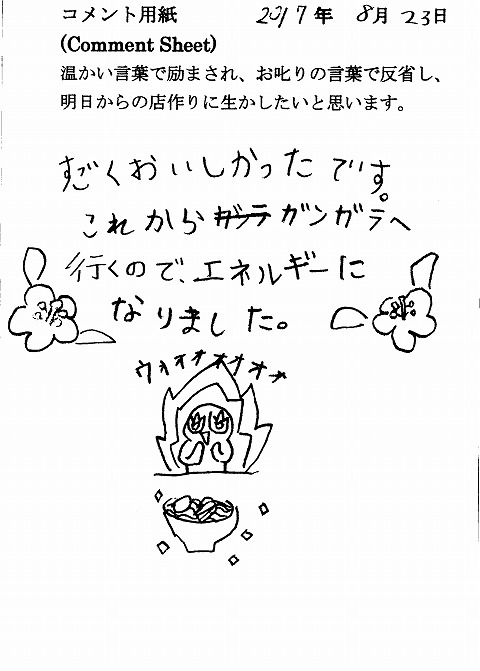 コメント用紙 2017年 8月 23日
(Comment Sheet)
温かい言葉で励まされ、お叱りの言葉で反省し、
明日からの店作りに生かしたいと思います。
すごくおいしかったです。
これからガラ ガンガラへ
行くので、エネルギーに
なりました。
ウォオオオオオォ